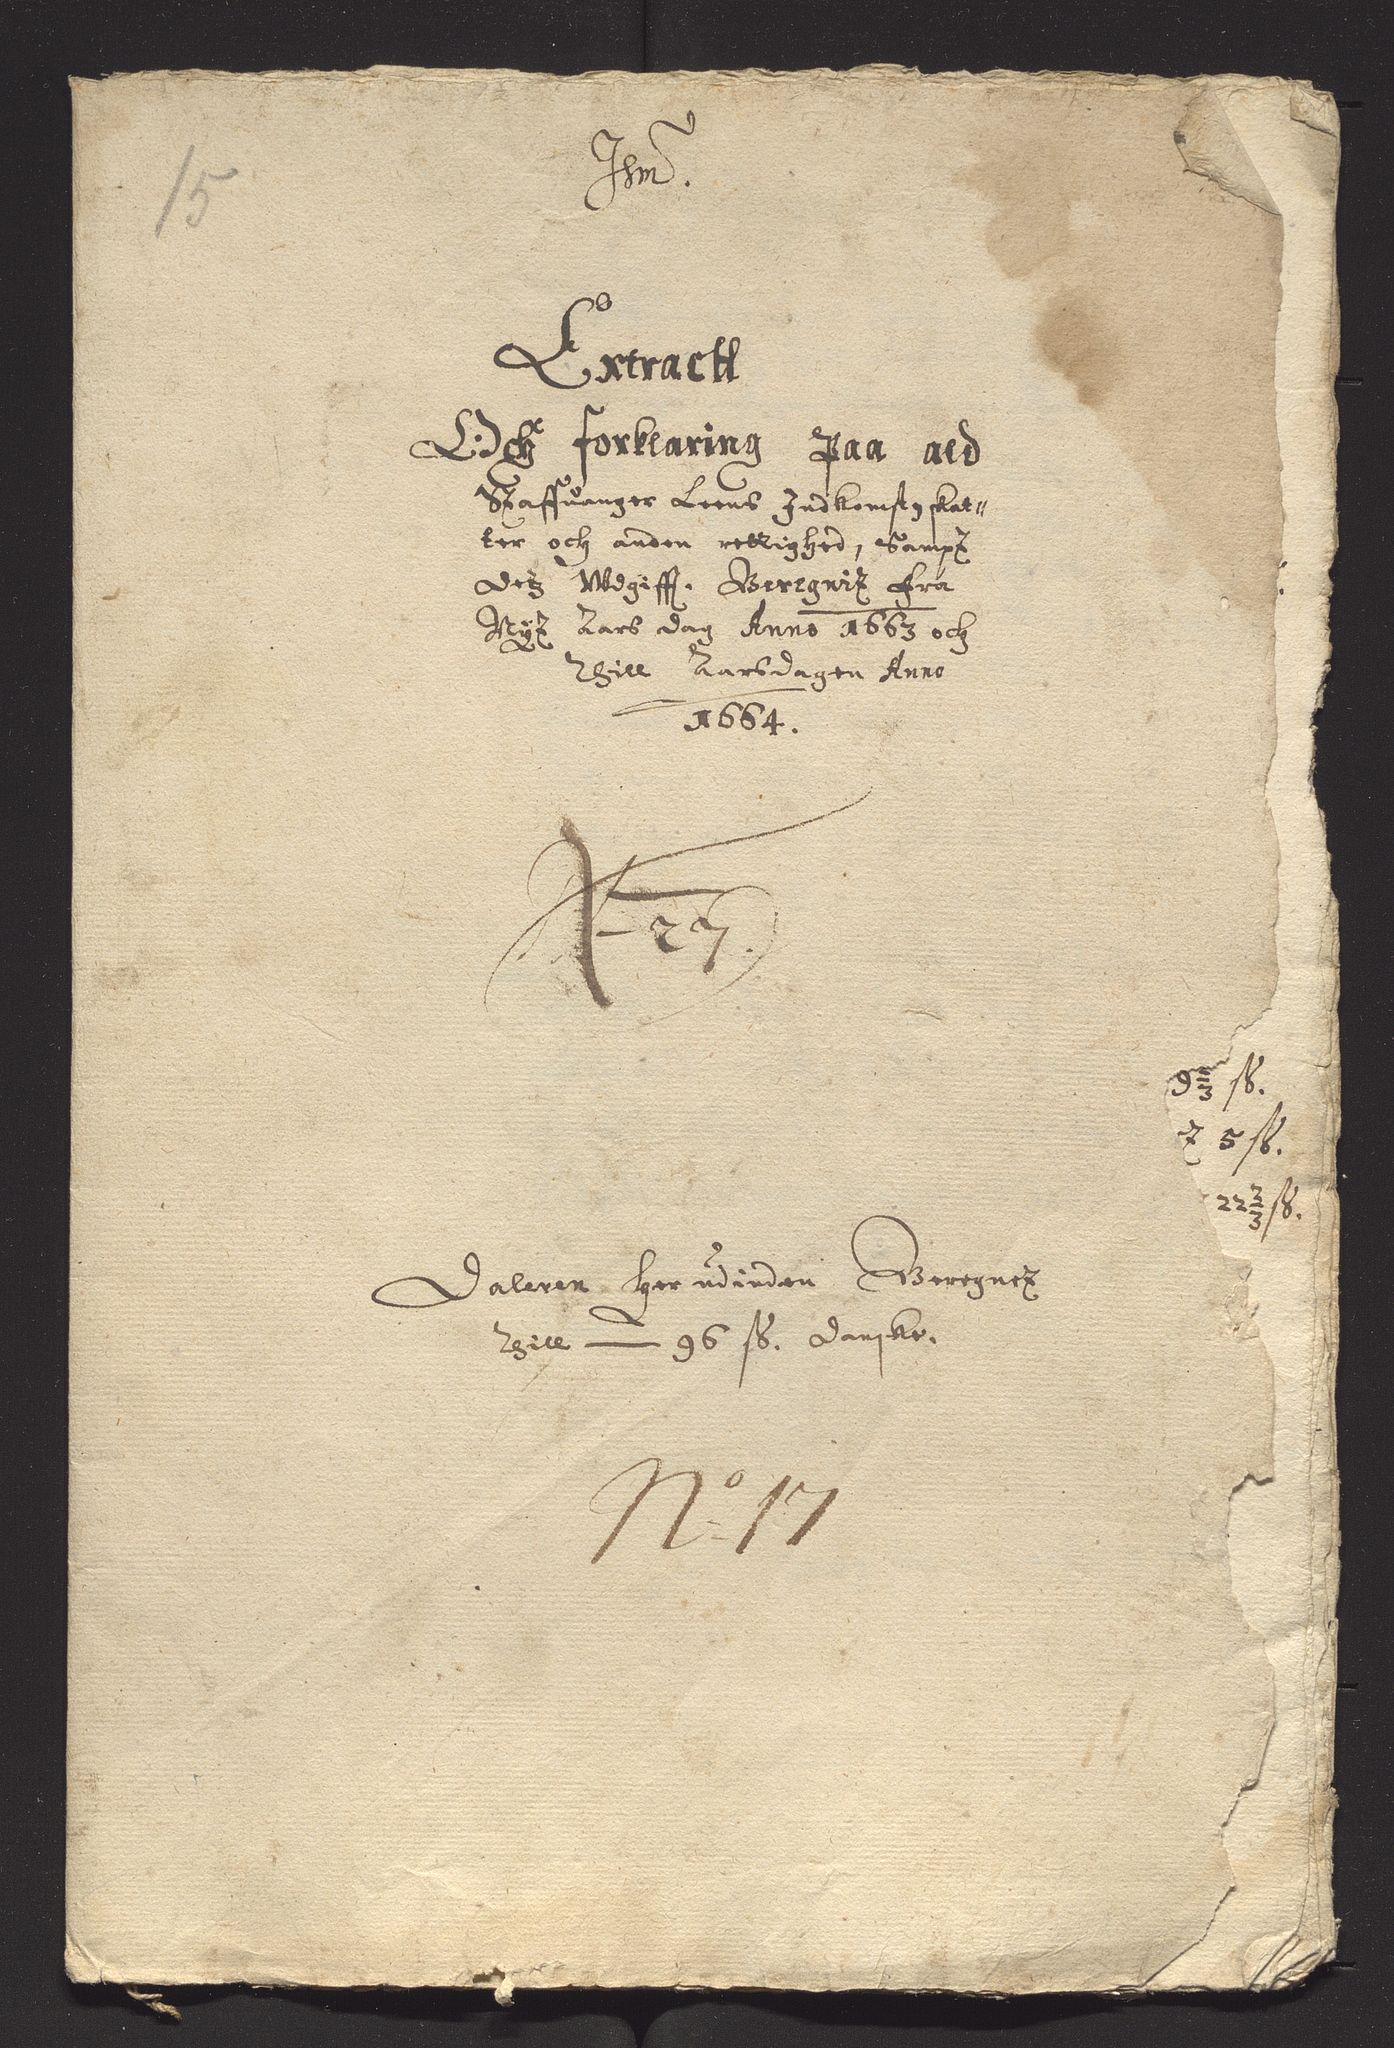 15
Ihm.
Extractt
Och forklaring Paa ald
Staffuanger Leens Indkomst, skat=
ter och anden rettighed, Sampt
dets Udgifft. Beregnit Fra
Nyt Aars dag Anno 1663 och
Thill Aarsdagen Anno
1664.
27.
9 2/3 ſß.
5 ſß.
22 2/3 ſß.
Daleren her udinden Beregnet
Thill — 96 ſß. Danske.
No 17